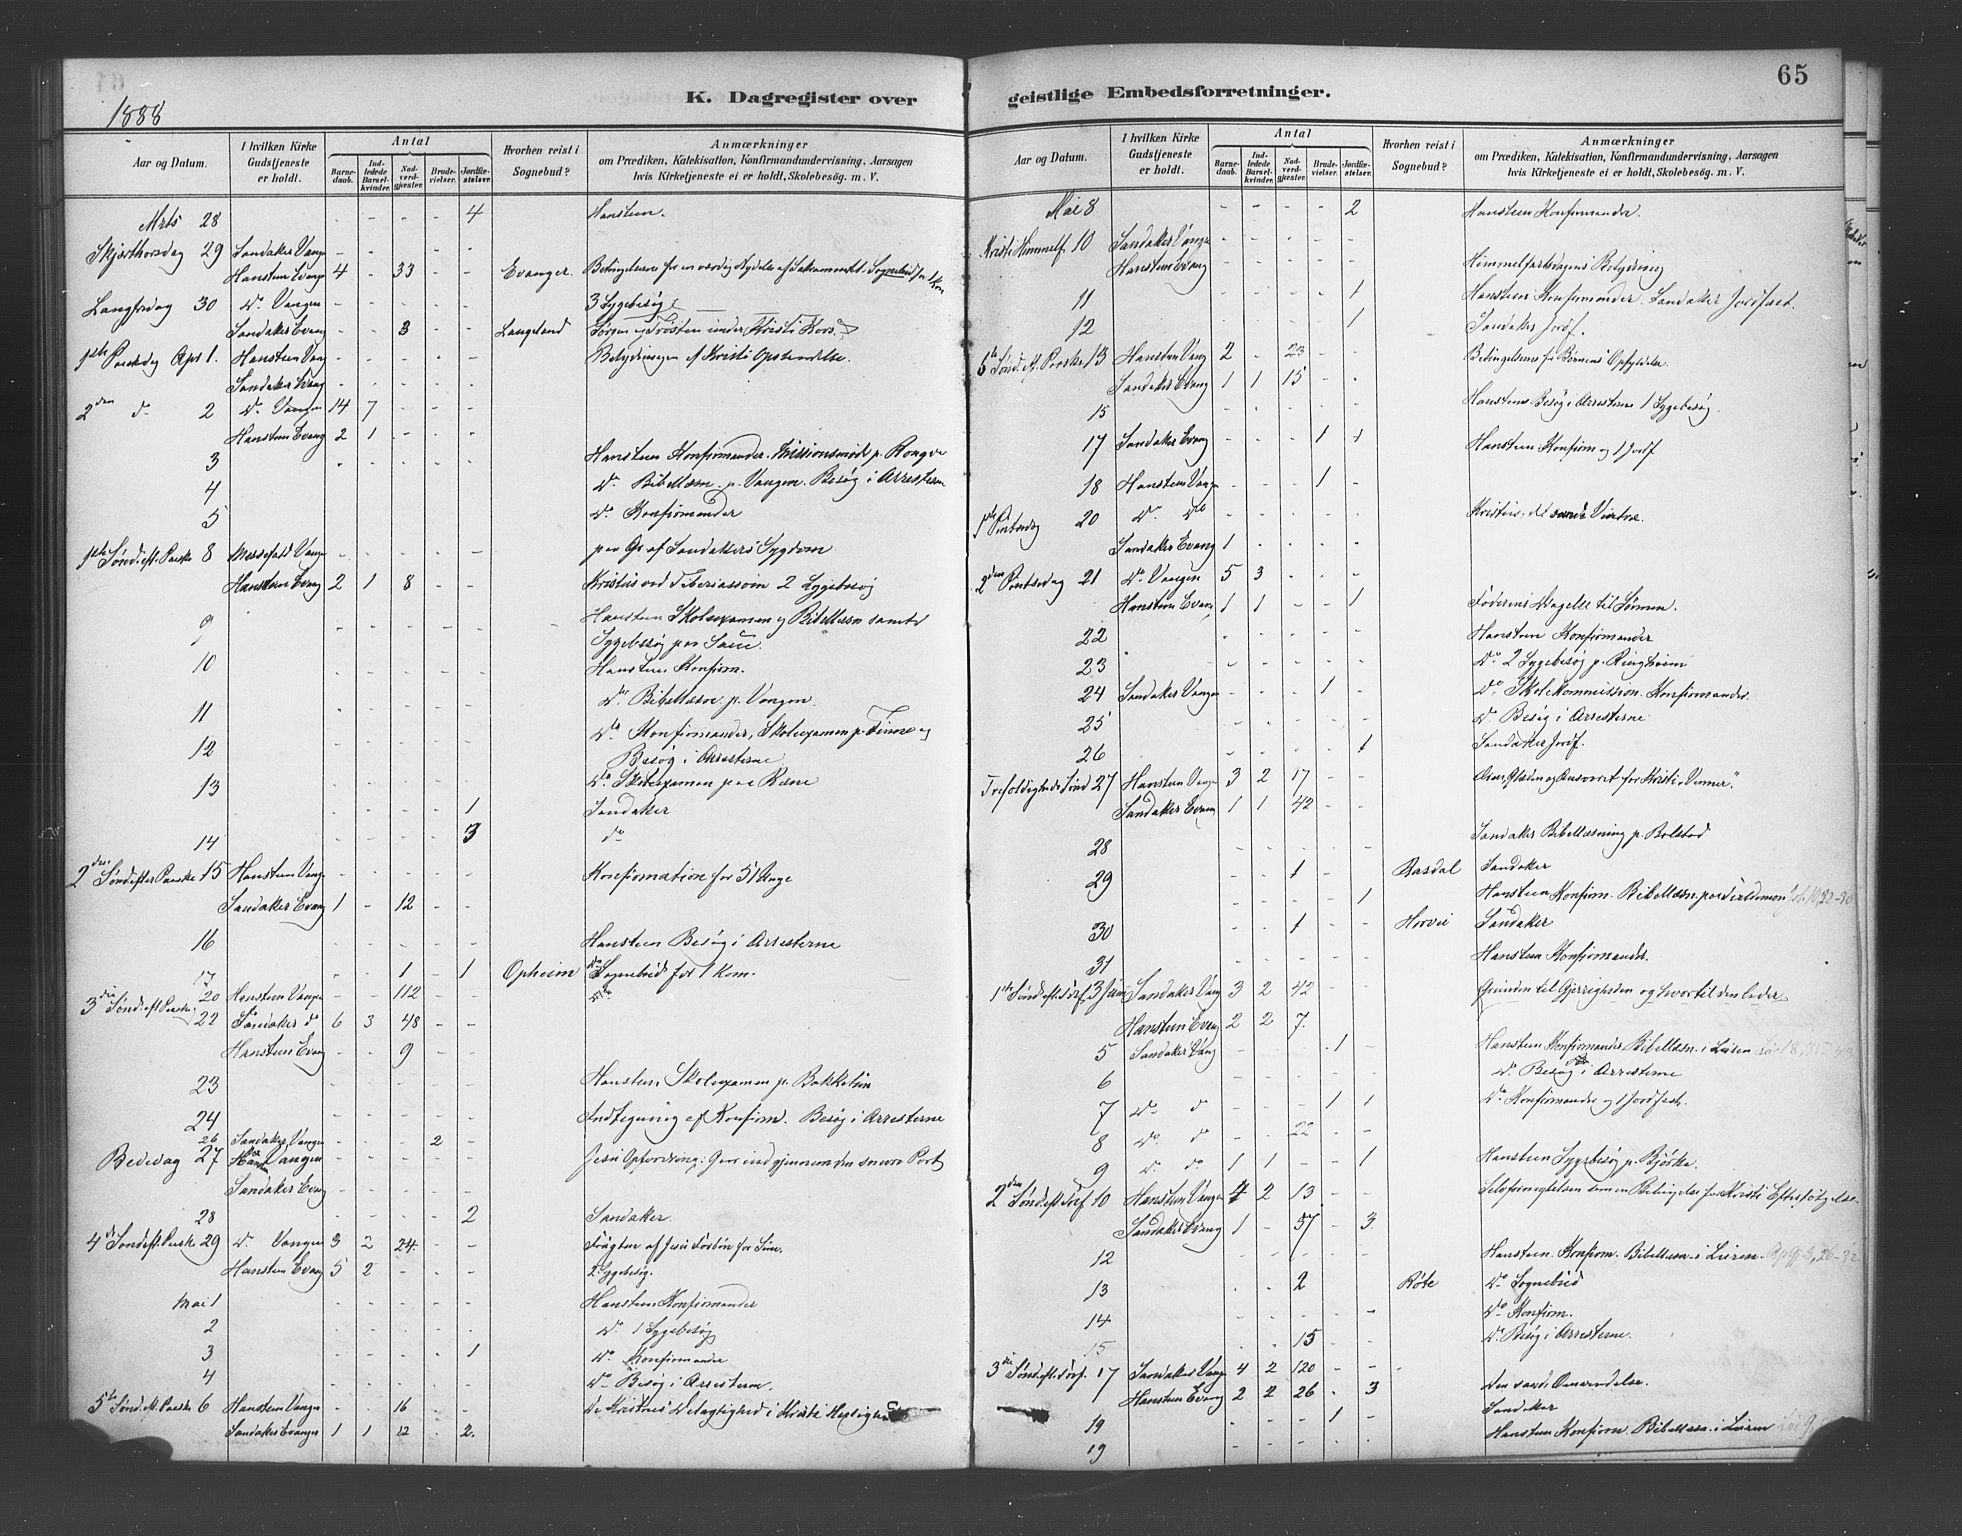 65
K. Dagregister over geistlige Embedsforretninger.
1888
Aar og Datum. | I hvilken Kirke Gudstjeneste er holdt. | Antal | Barnedaab. | Indledede Barselkvinder. | Nadverdgjester. | Brudevielser. | Jordfæstelser. | Hvorhen reist i Sognebud? | Anmærkninger
om Prædiken, Katekisation, Konfirmandundervisning, Aarsagen
hvis Kirketjeneste ei er holdt, Skolebesøg. m. V.
Mrts 28 - - - - 4 Hansteen.
Skjærthorsdag 29 Sandaker Vang - -
Hansteen Evang 4 - 33 - - Evanger. Betingelserne for en værdig Nydelse af Sakramentet. Sognebud for 1 Kom
Langfredag 30 Do Vangen - - - - - 3 Sygebesøg
Sandaker Evang - - 3 - - Langeland Sorgen og Trøsten under Kristi Kors.
1ste Paaskedag Apr 1. Hansteen Vang - - - - - Betydningen af Kristi Opstandelse.
Sandaker Evang - - - - -
2den d. 2 Do Vangen 14 7 - - -
Hansteen Evang 2 1 - - -
3 - - - - - Hansteen Konfirmander. Missionsmøde p. Rongve
4 - - - - - Do Bibellæsn. p. Vangen. Besøg i Arresterne
5 - - - - - Do Konfirmander
1ste Sønd. eft. Paaske 8 Messefald Vang - - - - - paa Gr. af Sandakers Sygdom
Hansteen Evang 2 1 8 - - Kristus ved Tiberiassøen 2 Sygebesøg
9 - - - - - Hansteen Skoleexamen og Bibellæsn samt
Sygebesøg paa
10 - - - - - Hansteen Konfirm.
11 - - - - - Do Bibellæsn. p. Vangen.
12 - - - - - Do Konfirmander, Skoleexamen p. Finne og
Besøg i Arresterne
13 - - - - - Do Skoleexamen paa
- - - - 1 Sandaker
14 - - - - 3 do
2den Sønd efter Paaske 15 Hansteen Vang - - - - - Konfirmation for 51 Unge
Sandaker Evang 1 - 12 - -
16 - - - - - Hansteen Besøg i Arresterne
17 - - 1 - 1 Opheim Do Sognebud for 1 Kom.
20 Hansteen Vangen - - 112 - - Do
3die Sønd. eft Paaske 22 Sandaker do 6 3 48 - -
Hansteen Evang - - 9 - -
23 - - - - - Hansteen Skoleexamen p. Bakketun
24 - - - - - Indtegning af Konfirm. Besøg i Arresterne
26 Sandaker Vangen - - - 2 -
Bededag 27 Hansteen Vangen - - - - - Jesu Opfordring: Gaar ind gjennem den snevre Port
Sandaker Evang - - - - -
28 - - - - 2 Sandaker.
4de Sønd eft. Paaske 29 Do Vangen 3 2 24 - - Frugten af Jesu Forbøn for Sine.
Hansteen Evang 5 2 - - - 2 Sygebesøg.
Mai 1 - - - - - Hansteen Konfirmander
2 - - - - - Do 1 Sygebesøg
3 - - - - 1 Do Konfirmander
4 - - - - - Do Besøg i Arresterne.
5te Sønd. eft. Paaske 6 Hansteen Vangen - - 16 - - De Kristnes Delagtighed i Kristi
Sandaker Evanger 1 1 12 - 2.
Aar og Datum. | I hvilken Kirke Gudstjeneste er holdt. | Antal | Barnedaab. | Indledede Barselkvinder. | Nadverdgjester. | Brudevielser. | Jordfæstelser. | Hvorhen reist i Sognebud? | Anmærkninger
om Prædiken, Katekisation, Konfirmandundervisning, Aarsagen
hvis Kirketjeneste ei er holdt, Skolebesøg. m. V.
Mai 8 - - - - 2 Hansteen Konfirmander.
Kristi Himmelf. 10 Sandaker Vangen - - - - -
Hansteen Evang - - - - - Himmelfartsdagens Betydning
11 - - - - 1 Hansteen Konfirmander. Sandaker Jordfæst.
12 - - - - 1 Sandaker Jordf.
6te Sønd. eft. Paaske 13 Hansteen Vang 2 - 23 - - Betingelserne for Bønnens Opfyldelse.
Sandaker Evang 1 1 15 - -
15 - - - - - Hansteen Besøg i Arresterne 1 Sygebesøg.
17 Sandaker Evang - - - 1 1 Hansteen Konfirm og 1 Jordf
18 Hansteen Vangen - - - 1 -
1ste Pintsedag 20 Do Do - - - - - Kristus, det sande Vintræ.
Sandaker Evang 1 - - - -
2den Pintsedag 21 Do Vangen 5 3 - - -
Hansteen Evan 1 1 - - 1 Faderens Dragelse til Sønnen.
22 - - - - - Hansteen Konfirmander
23 - - - - - Do 2 Sygebesøg p. Ringheim
24 Sandaker Vangen - - - 1 - Do Skolekommission. Konfirmander.
25 - - - - - Do Besøg i Arresterne
26 - - - - 1 Sandaker Jordf.
Trefoldigheds Sønd 27 Hansteen Vangen 3 2 17 - - Glæden og Ansvaret for Kristi Venner".
Sandaker Evan 1 1 42 - -
28 - - - - - Sandaker Bibellæsning p. Bolstad
29 - - 1 - - Rasdal Sandaker
- - - - 1 Hansteen Konfirm. Bibellæsn. paa
30 - - 1 - - Horvei Sandaker
31 - - - - - Hansteen Konfirmander.
1ste Sønd. eft. Tref. 3 Juni Sandaker Vang 3 2 42 - - Grunden til Gjerrigheden og hvortil den leder
Hansteen Evang 2 2 7. - -
5 Sandaker Vang - - - 1 - Hansteen Konfirmander Bibellæsn. i Leiren
6 - - - - - Do Besøg i Arresterne
7 Do d - - - 1 1 Do Konfirmander og 1 Jordfest.
8 Do d - - 22 - -
9 Do do 1 1 - - 1 Hansteen Sygebesøg p. Bjørke.
2den Sønd. eft Tref 10 Hansteen Vangen 4 2 13 - - Selvfornegtelsen som en Betingelse for Kristi Efterfølgelse.
Sandaker Evang 1 - 57 - 3
12 - - - - - Hansteen. Konfirm. Bibellæsn. i Leiren. Ap Gj 8, 26-32
13 - - 2 - - Røte Do Sognebud
14 - - - - - Do Konfirm.
15 - - 15 - - Do Besøg i Arresterne.
3die Sønd. eft. Tref. 17 Sandaker Vang 4 2 120 - -
Hansteen Evang 2 2 26 - 3 Den sande Omvendelse.
19 - - - 1 - Sandaker
19 - - - - - Hansteen Konfirm. Bibellæsn. i Leiren